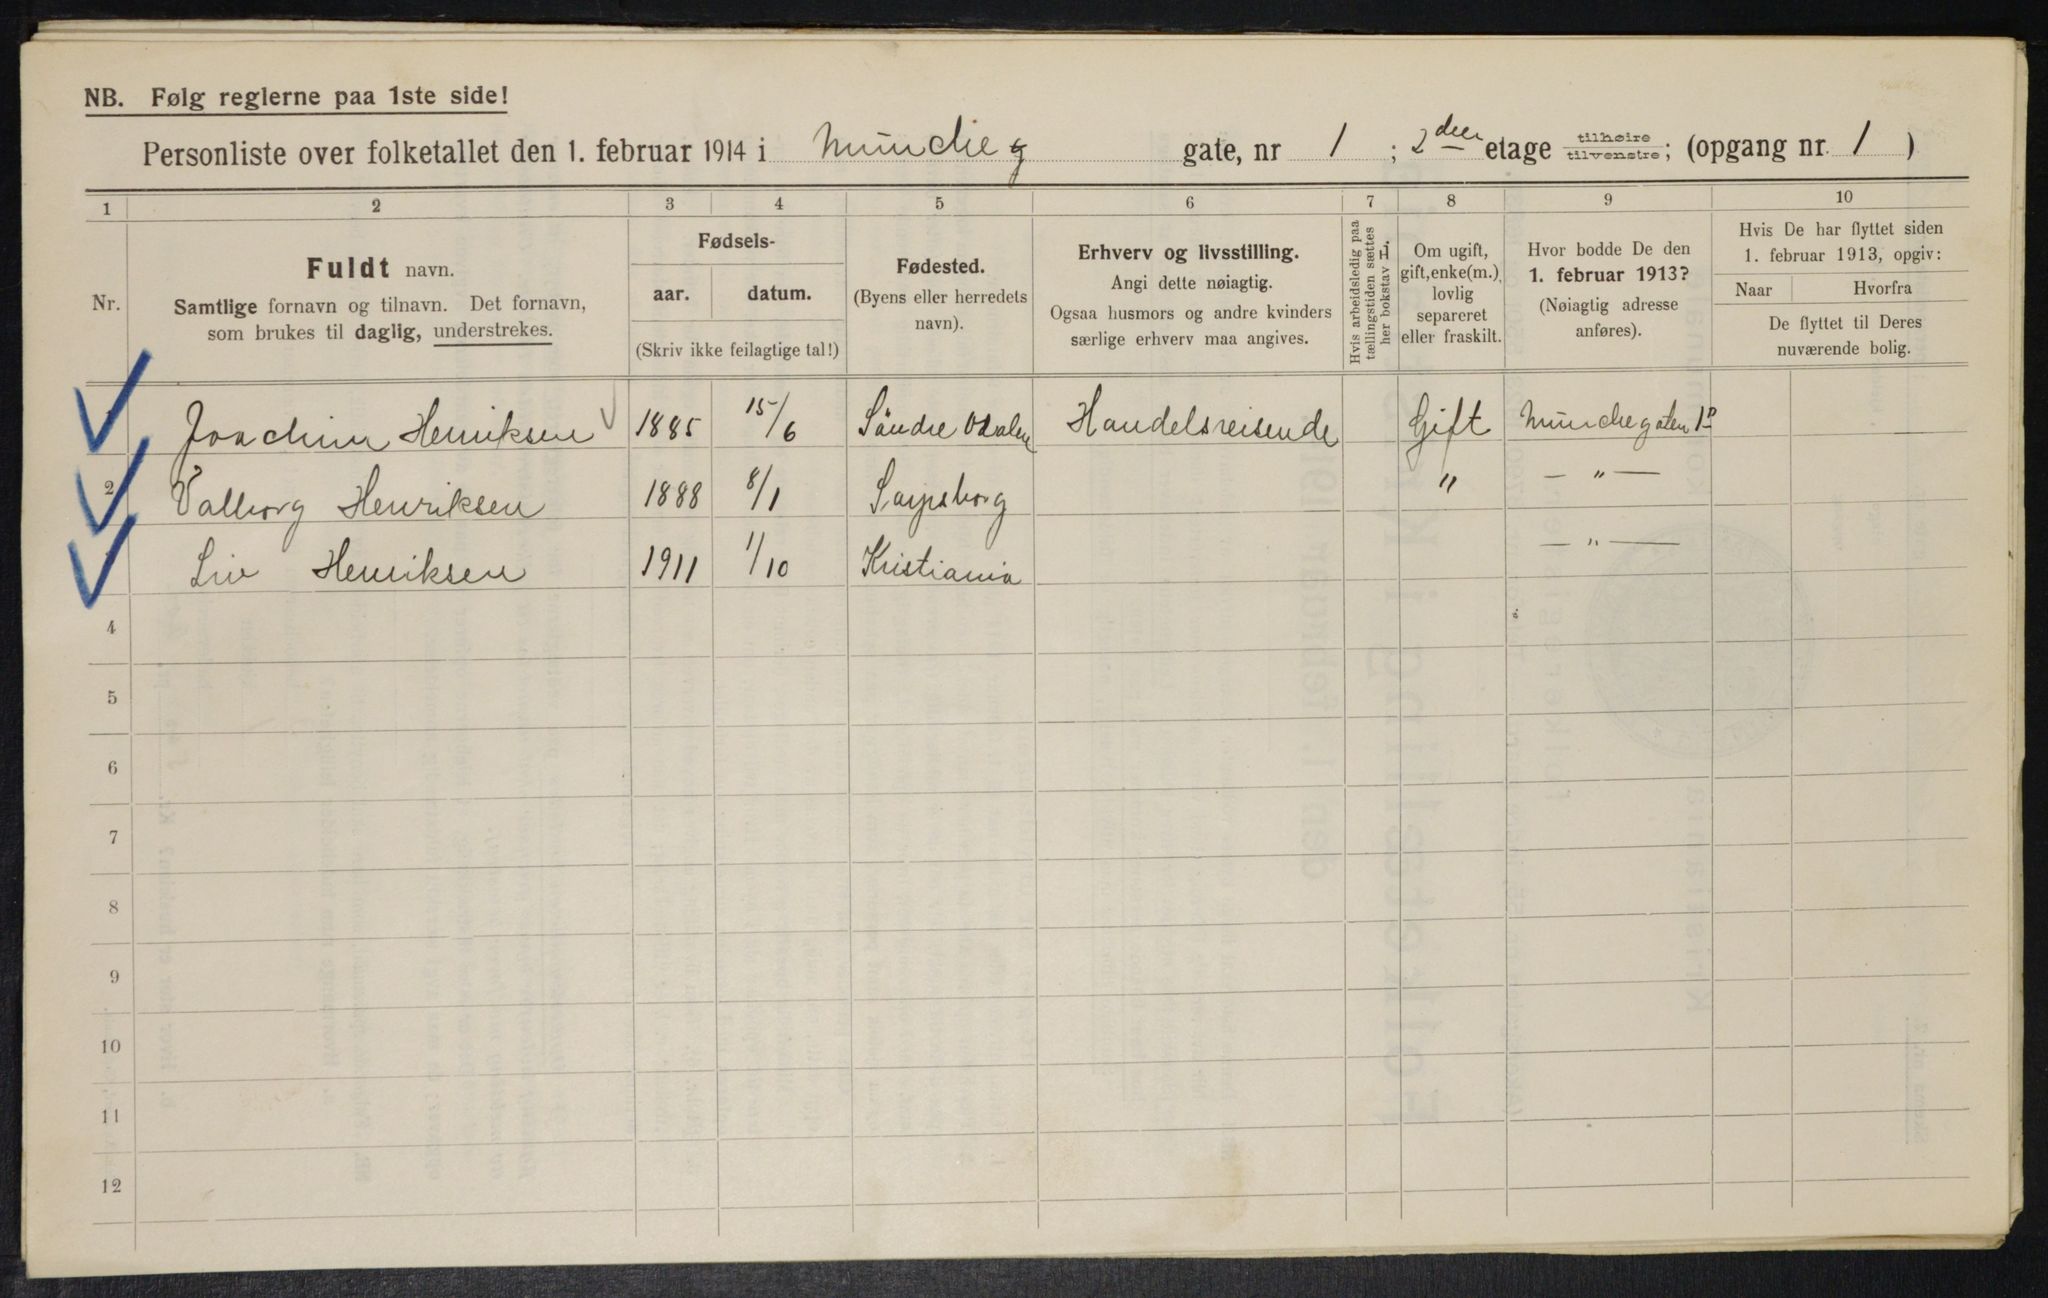 NB. Følg reglerne paa 1ste side!
Personliste over folketallet den 1. februar 1914 i Munche g gate, nr 1 ; 2den etage tilhøire tilvenstre; (opgang nr. 1 )
1 2 3 4 5 6 7 8 9 10
Nr.
Fuldt navn.
Samtlige fornavn og tilnavn. Det fornavn,
som brukes til daglig, understrekes.
Fødsels-
aar. datum.
(Skriv ikke feilagtige tal!)
Fødested.
(Byens eller herredets
navn).
Erhverv og livsstilling.
Angi dette nøiagtig.
Ogsaa husmors og andre kvinders
særlige erhverv maa angives.
Hvis arbeidsledig paa
tællingstiden sættes
her bokstav L.
Om ugift,
gift, enke(m.),
lovlig
separeret
eller fraskilt.
Hvor bodde De den
1. februar 1913?
(Nøiagtig adresse
anføres).
Hvis De har flyttet siden
1. februar 1913, opgiv:
Naar Hvorfra
De flyttet til Deres
nuværende bolig.
Joachim Henriksen 1885 15/6 Söndre Odalen Handelsreisende Gift Munchegaten 1
2 Valborg Henriksen 1888 8/1 Sarpsborg " — " —
Liv Henriksen 1911 1/10 Kristiania — " —
4
5
6
7
8
9
10
11
12